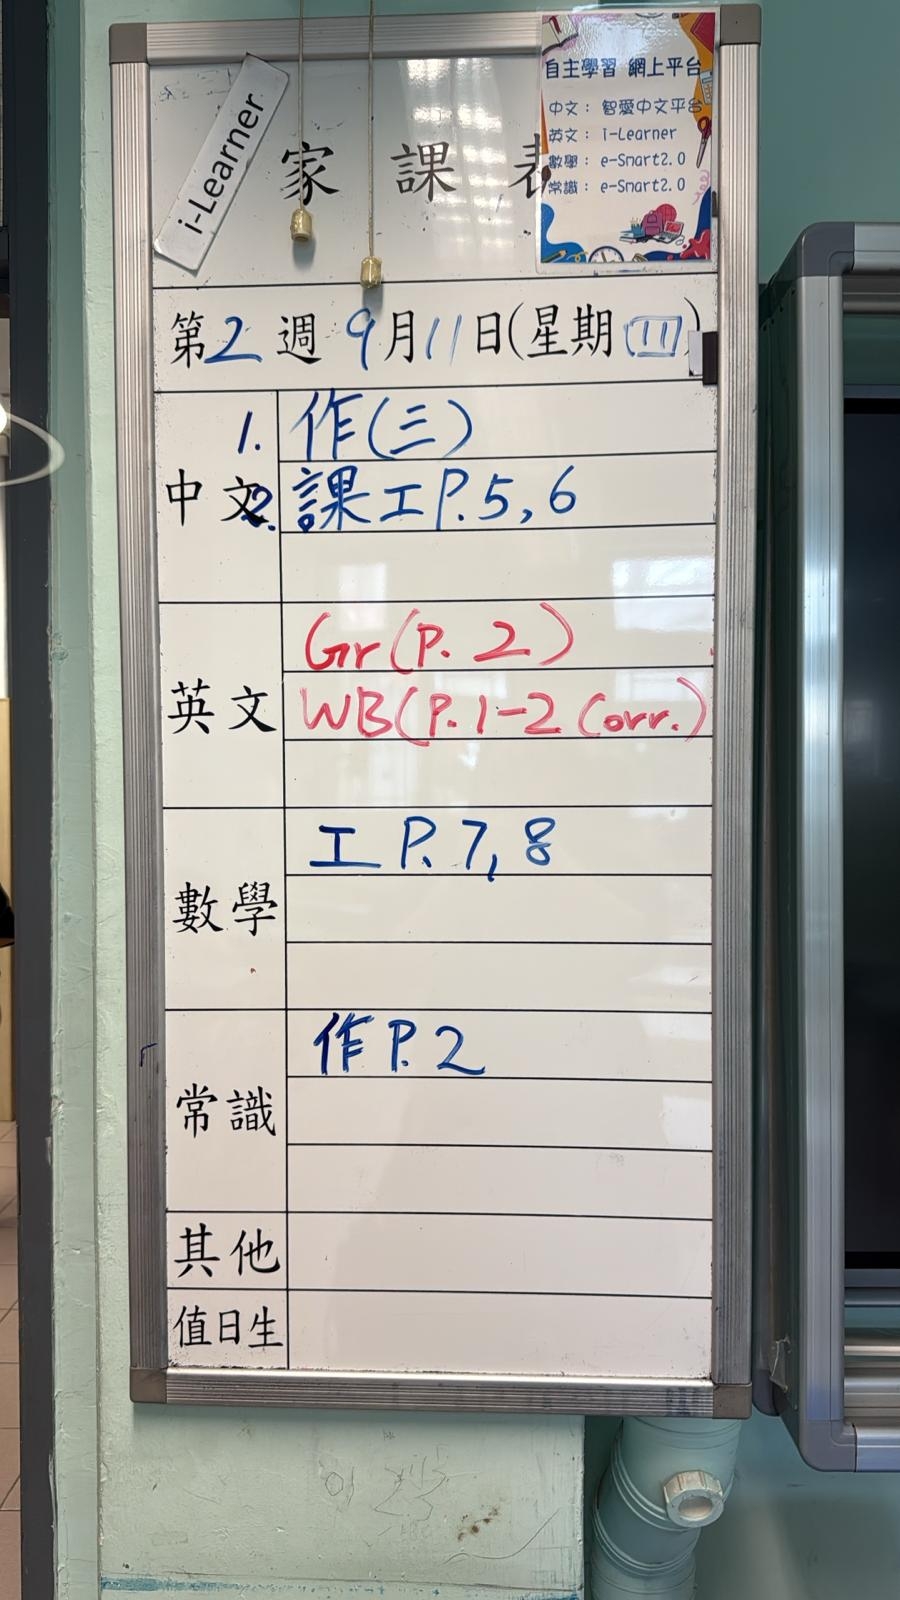 i-Learner
家課表
自主學習 網上平台
中文： 智愛中文平台
英文： i-Learner
數學： e-Smart2.0
常識： e-Smart2.0
第2週 9月11日(星期四)
中文
1. 作(三)
2. 課工P.5,6
英文
Gr(P.2)
WB(P.1-2 Corr.)
數學
工 P.7,8
常識
作 P.2
其他
值日生